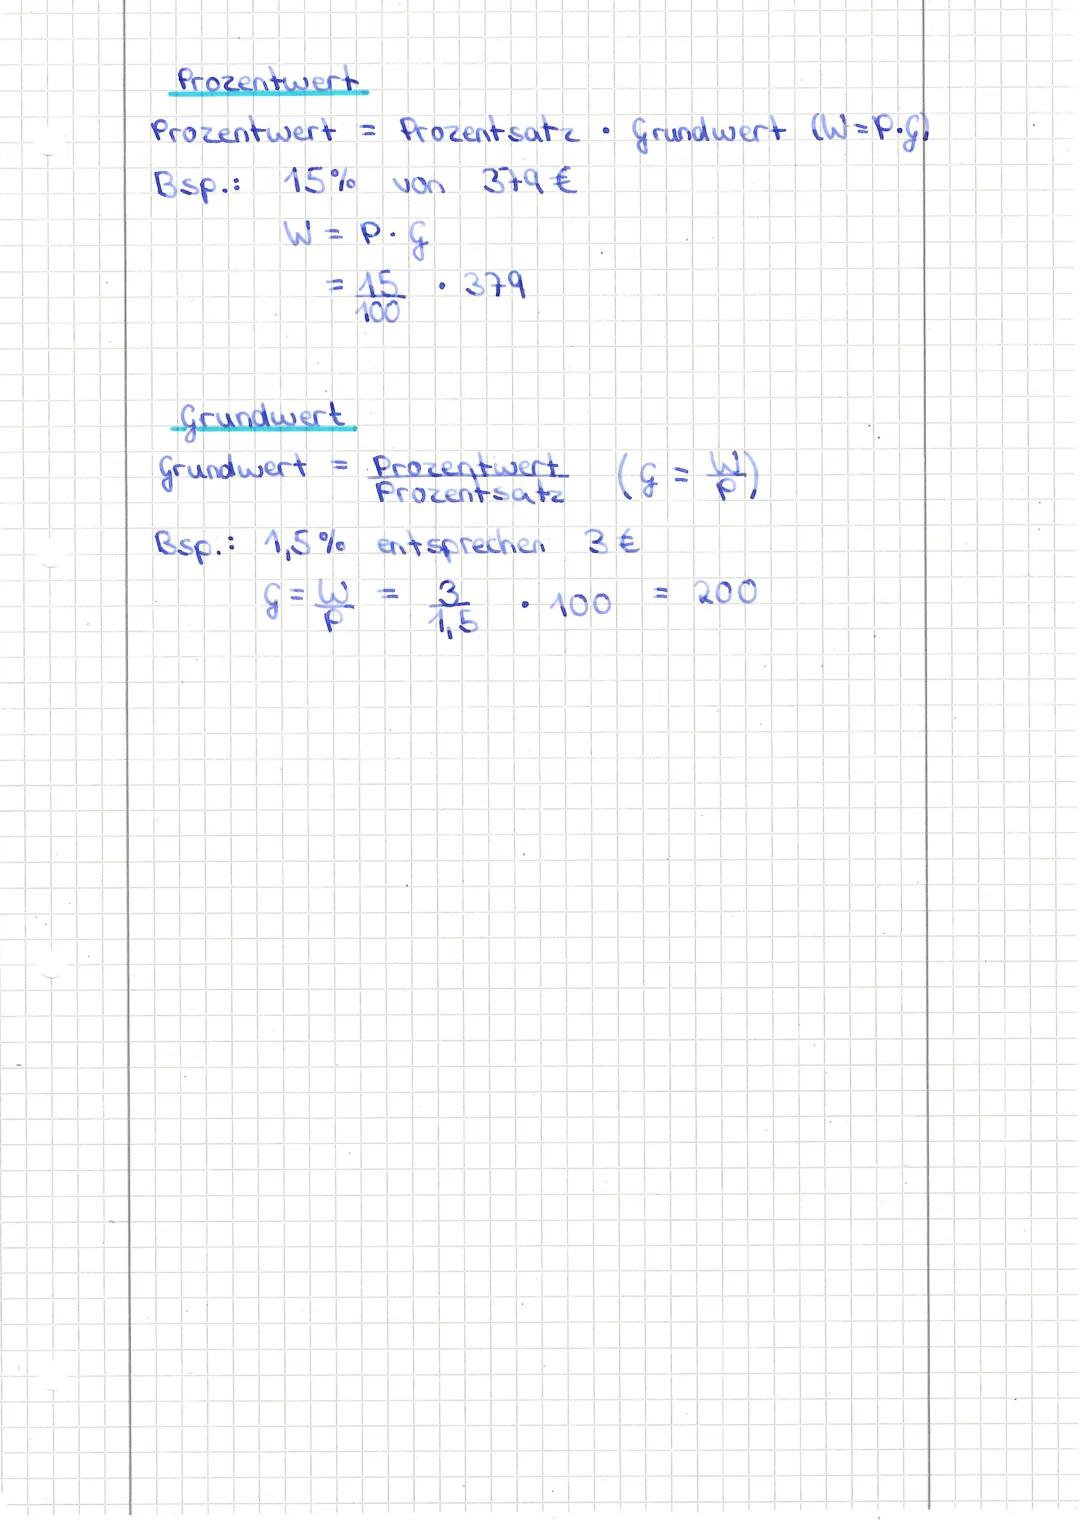 Prozentwert
Prozentwert = Prozentsatz · Grundwert (W=P·G)
Bsp.: 15% von 379 €
W = P · G
= 15/100 · 379
Grundwert
Grundwert = Prozentwert/Prozentsatz (G = W/P)
Bsp.: 1,5% entsprechen 3 €
G = W/P = 3/1,5 · 100 = 200